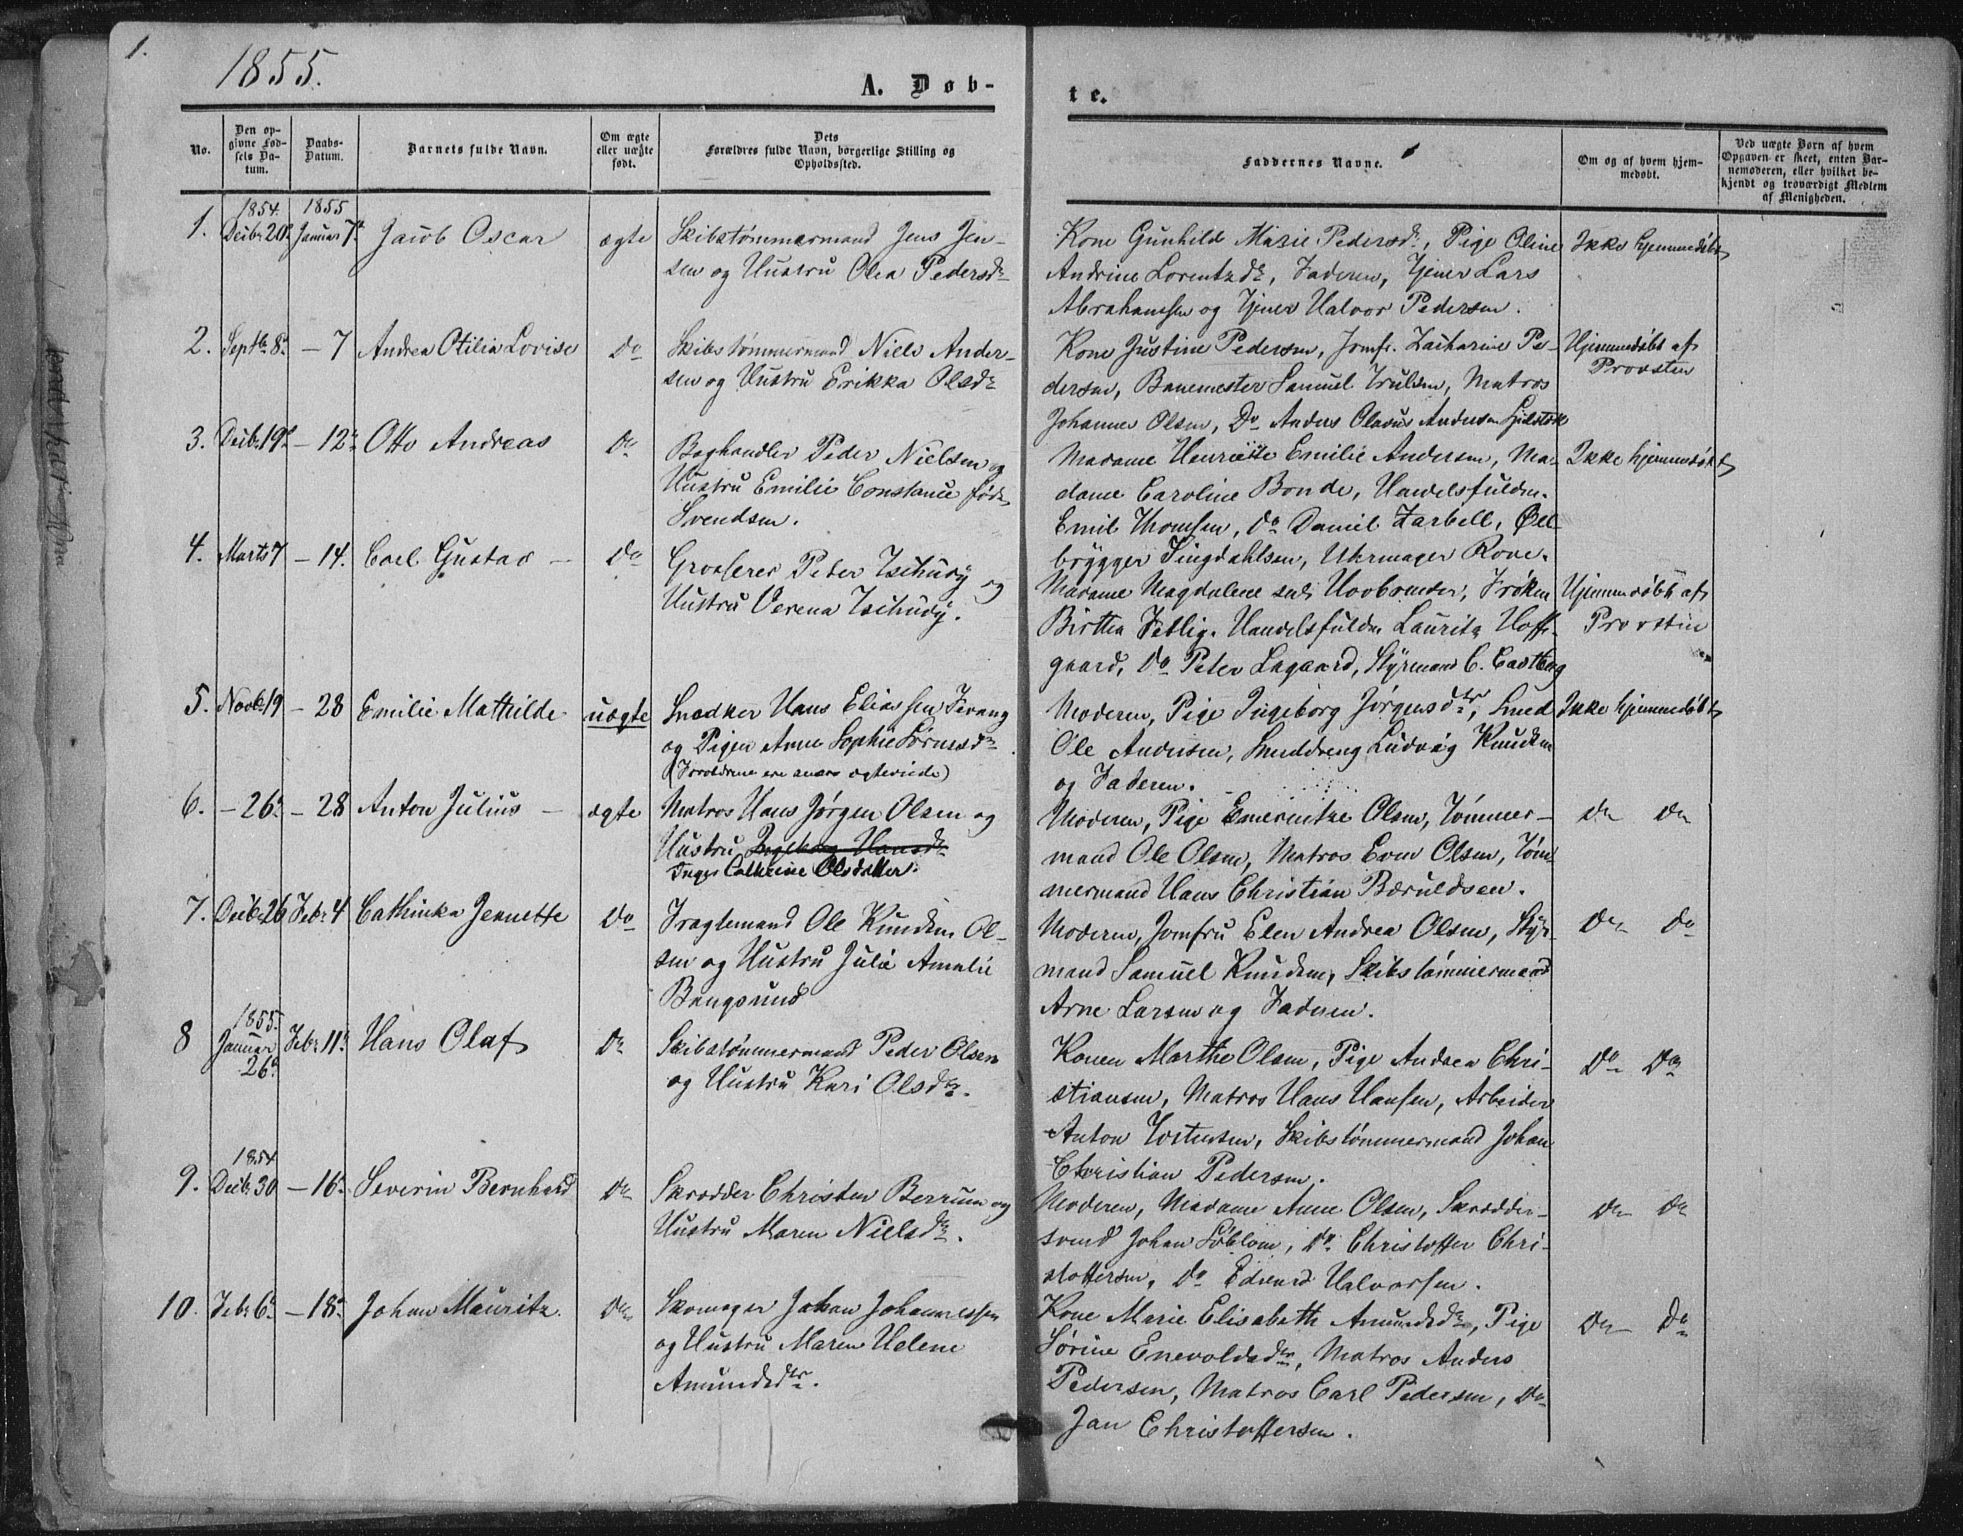 1.
1855.
A. Døb-
te.
No.
Den op-
givne Fød-
sels Da-
tum.
Daabs-
Datum.
Barnets fulde Navn.
Om ægte
eller uægte
født.
Dets
Forældres fulde Navn, borgerlige Stilling og
Opholdssted.
Faddernes Navne.
Om og af hvem hjem-
medøbt.
Ved uægte Børn af hvem
Opgaven er skeet, enten Bar-
nemoderen, eller hvilket be-
kjendt og troværdigt Medlem
af Menigheden.
1854. 1855
1. Decbr 20de Januar 7de Jacob Oscar ægte Skibstømmermand Jens Jen-
sen og Hustru Olea Pedersdr
Kone Gunhild Marie Pedersdr, Pige Oline
Andrine Lorentzdr, Faderen, Tjener Lars
Abrahamsen og Tjener Halvor Pedersen.
Ikke hjemmedøbt
2. Septbr 8de – 7 Andrea Otilia Lovise Do Skibstømmermand Niels Ander-
sen og Hustru Erikka Olsdr
Kone Justine Pedersen, Jomfr. Zacharine Pe-
dersen, Banemester Samuel Trulsen, Matros
Johannes Olsen, Do Anders Olavus Andersen
Hjemmedøbt af
Provsten
3. Decbr 19de – 12te Otto Andreas Do Boghandler Peder Nielsen og
Hustru Emilie Constance født
Svendsen.
Madame Henriette Emilie Andersen, Ma-
dame Caroline Bonde, Handelsfuldm.
Emil Thomsen, Do Daniel Zarbell, Øll-
brygger Singdahlsen, Uhrmager Rove.
Ikke hjemmedøbt
4. Marts 7 – 14. Carl Gustav – Do Grosserer Peter Tschudy og
Hustru Verena Tschudy.
Madame Magdalene Hovbrender, Frøken
Birtha Fetlig. Handelsfuldm Lauritz Hoff-
gaard, Do Peter Lagaard, Styrmand C. Castberg
Hjemmedøbt af
Provsten
5. Novbr 19 – 28 Emilie Mathilde uægte Snedker Hans Eliassen Tevang
og Pigen Anne Sophie Sørensdr.
(Forældrene ere senere ægteviede)
Moderen, Pige Ingeborg Jørgensdtr, Smed
Ole Andersen, Smeddreng Ludvig Knudsen
og Faderen.
Ikke hjemmedøbt
6. – 26de – 28 Anton Julius – ægte Matros Hans Jørgen Olsen og
Hustru Ingeborg Hansdr
Inger Cathrine Olsdatter.
Moderen, Pige Emerentze Olsen, Tømmer-
mand Ole Olsen, Matros Even Olsen, Tøm-
mermand Hans Christian Bæruldsen.
Do Do
7. Decbr 26 Febr 4 Cathinka Jennette Do Fragtemand Ole Knudsen Ol-
sen og Hustru Julie Amalie
Bangsund
Moderen, Jomfru Elen Andrea Olsen, Styr-
mand Samuel Knudsen, Skibstømmermand
Arne Larsen og Faderen.
Do Do
1855.
8 Januar
26de Febr 11te Hans Olaf Do Skibstømmermand Peder Olsen
og Hustru Kari Olsdr.
Konen Marthe Olsen, Pige Andrea Chri-
stiansen, Matros Hans Hansen, Arbeider
Anton Tostensen, Skibstømmermand Johan
Christian Pedersen.
Do Do
1854
9. Decbr 30 – 16de Severin Bernhard Do Skrædder Christen Berrum og
Hustru Maren Nielsdr.
Moderen, Madame Anne Olsen, Skrædder-
svend Johan Søblom, Do Christoffer Chri-
stoffersen, Do Edvard Halvorsen.
Do Do
10. Febr 6te – 18de Johan Mauritz. Do Skomager Johan Johannessen
og Hustru Maren Helene
Amundsdtr.
Kone Marie Elisabeth Amundsdr, Pige
Sørine Enevoldsdtr, Matros Anders
Pedersen, Matros Carl Pedersen, Do
Jan Christoffersen.
Do Do